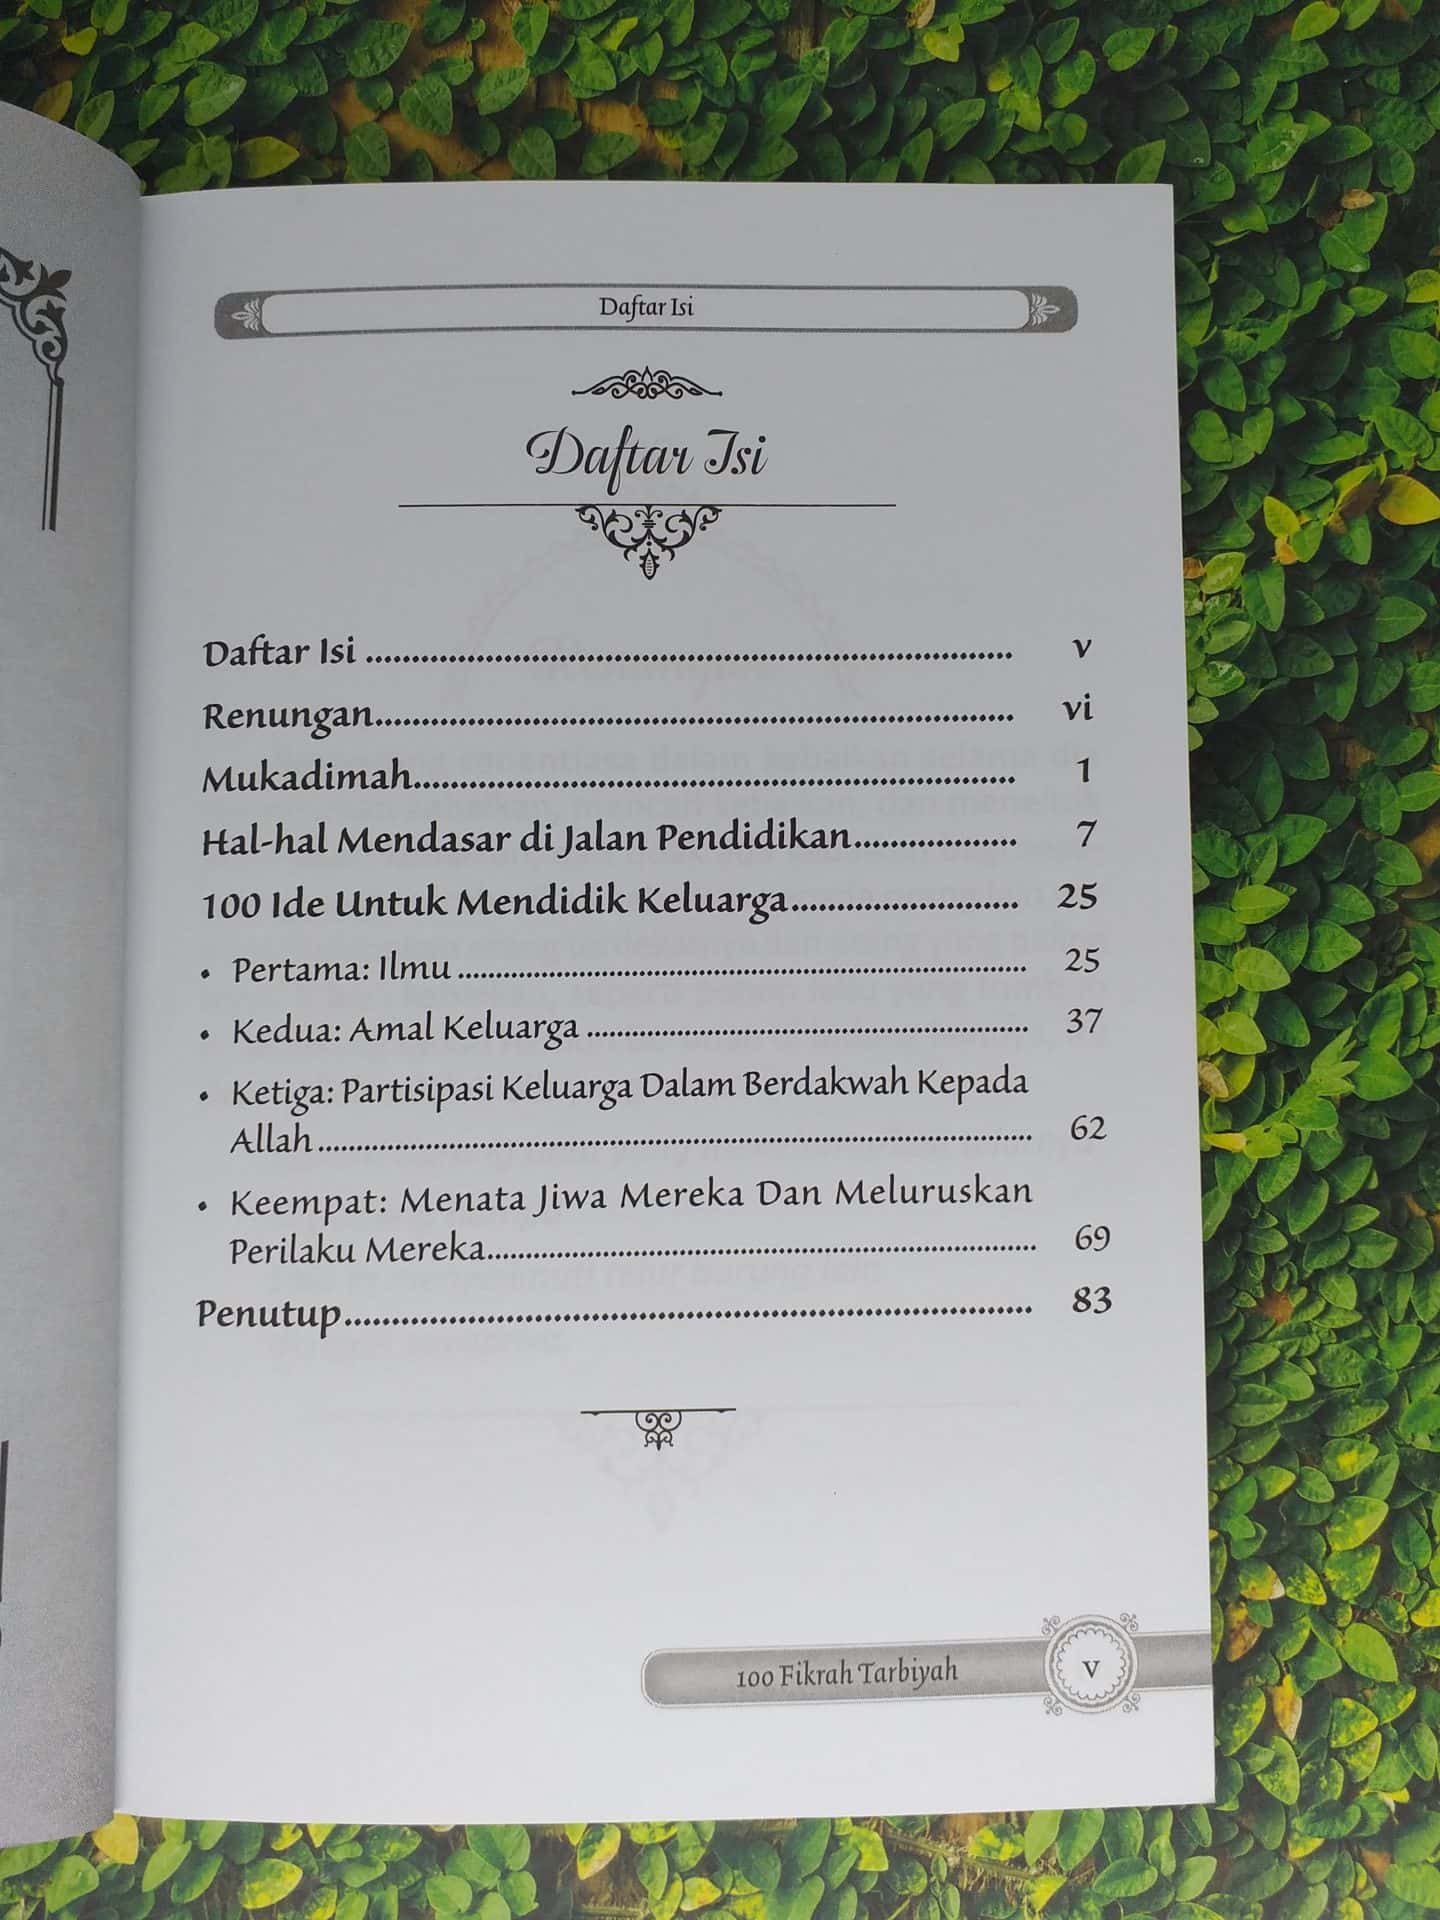 Daftar Isi
Daftar Isi
Daftar Isi ........................................ v
Renungan........................................ vi
Mukadimah........................................ 1
Hal-hal Mendasar di Jalan Pendidikan.................. 7
100 Ide Untuk Mendidik Keluarga......................... 25
• Pertama: Ilmu ........................................ 25
• Kedua: Amal Keluarga ........................................ 37
• Ketiga: Partisipasi Keluarga Dalam Berdakwah Kepada
Allah ........................................ 62
• Keempat: Menata Jiwa Mereka Dan Meluruskan
Perilaku Mereka........................................ 69
Penutup........................................ 83
100 Fikrah Tarbiyah
v